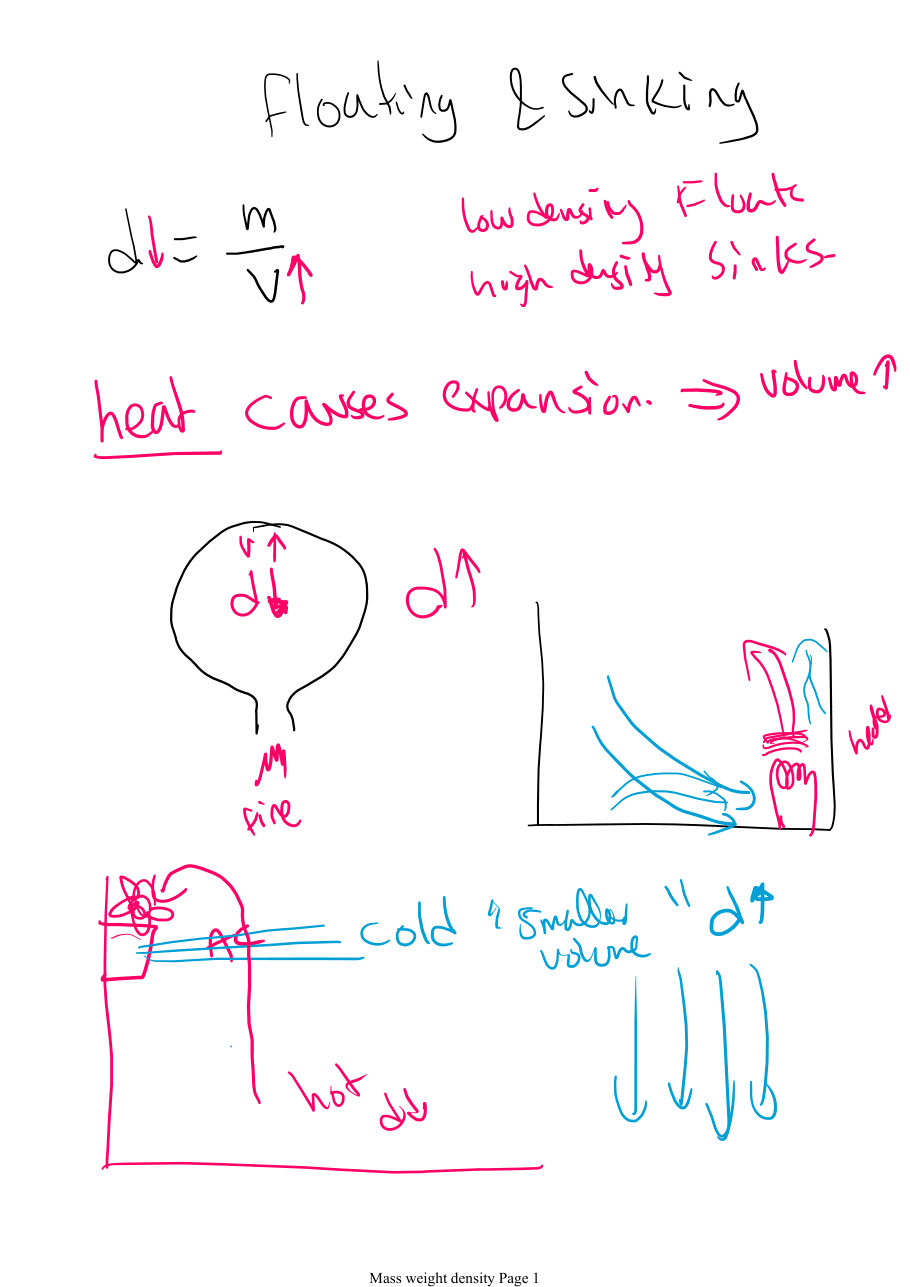 Floating & Sinking
d↓ = m/V↑
low density Floats
high density Sinks
heat causes expansion. ⇒ volume ↑
v ↑
d↓
d↑
fire
heater
AC
cold "smaller volume" d↑
hot d↓
Mass weight density Page 1